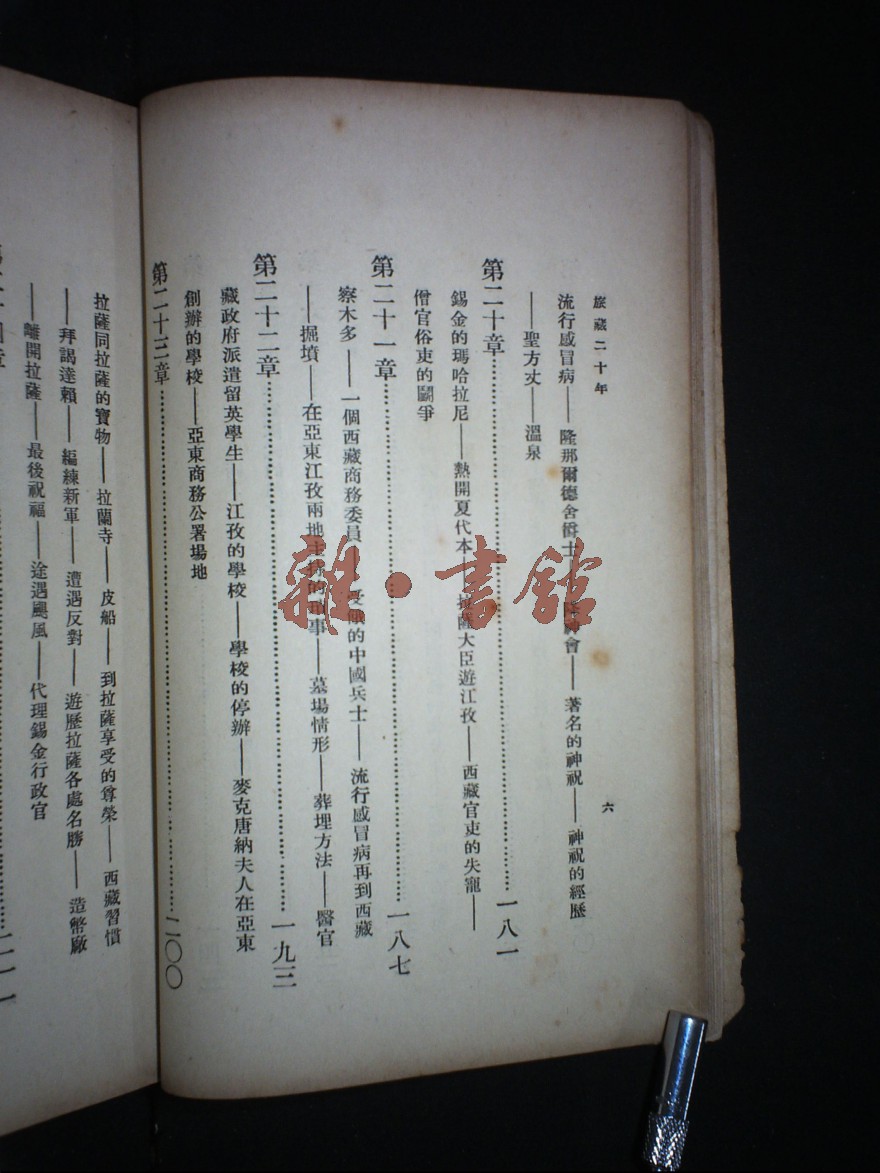 旅藏二十年
六
流行感冒病——隆那爾德舍爵士——神會——著名的神祝——神祝的經歷
——聖方丈——溫泉
第二十章……一八一
錫金的瑪哈拉尼——熱開夏代本——拉薩大臣遊江孜——西藏官吏的失寵——
僧官俗吏的鬭爭
第二十一章……一八七
察木多——一個西藏商務委員——受餓的中國兵士——流行感冒病再到西藏
——掘墳——在亞東江孜兩地的事——墓場情形——葬埋方法——醫官
第二十二章……一九三
藏政府派遣留英學生——江孜的學校——學校的停辦——麥克唐納夫人在亞東
創辦的學校——亞東商務公署場地
第二十三章……二〇〇
拉薩同拉薩的寶物——拉蘭寺——皮船——到拉薩享受的尊榮——西藏習慣
——拜謁達賴——編練新軍——遭遇反對——遊歷拉薩各處名勝——造幣廠
——離開拉薩——最後祝福——途遇颶風——代理錫金行政官
雜·書館